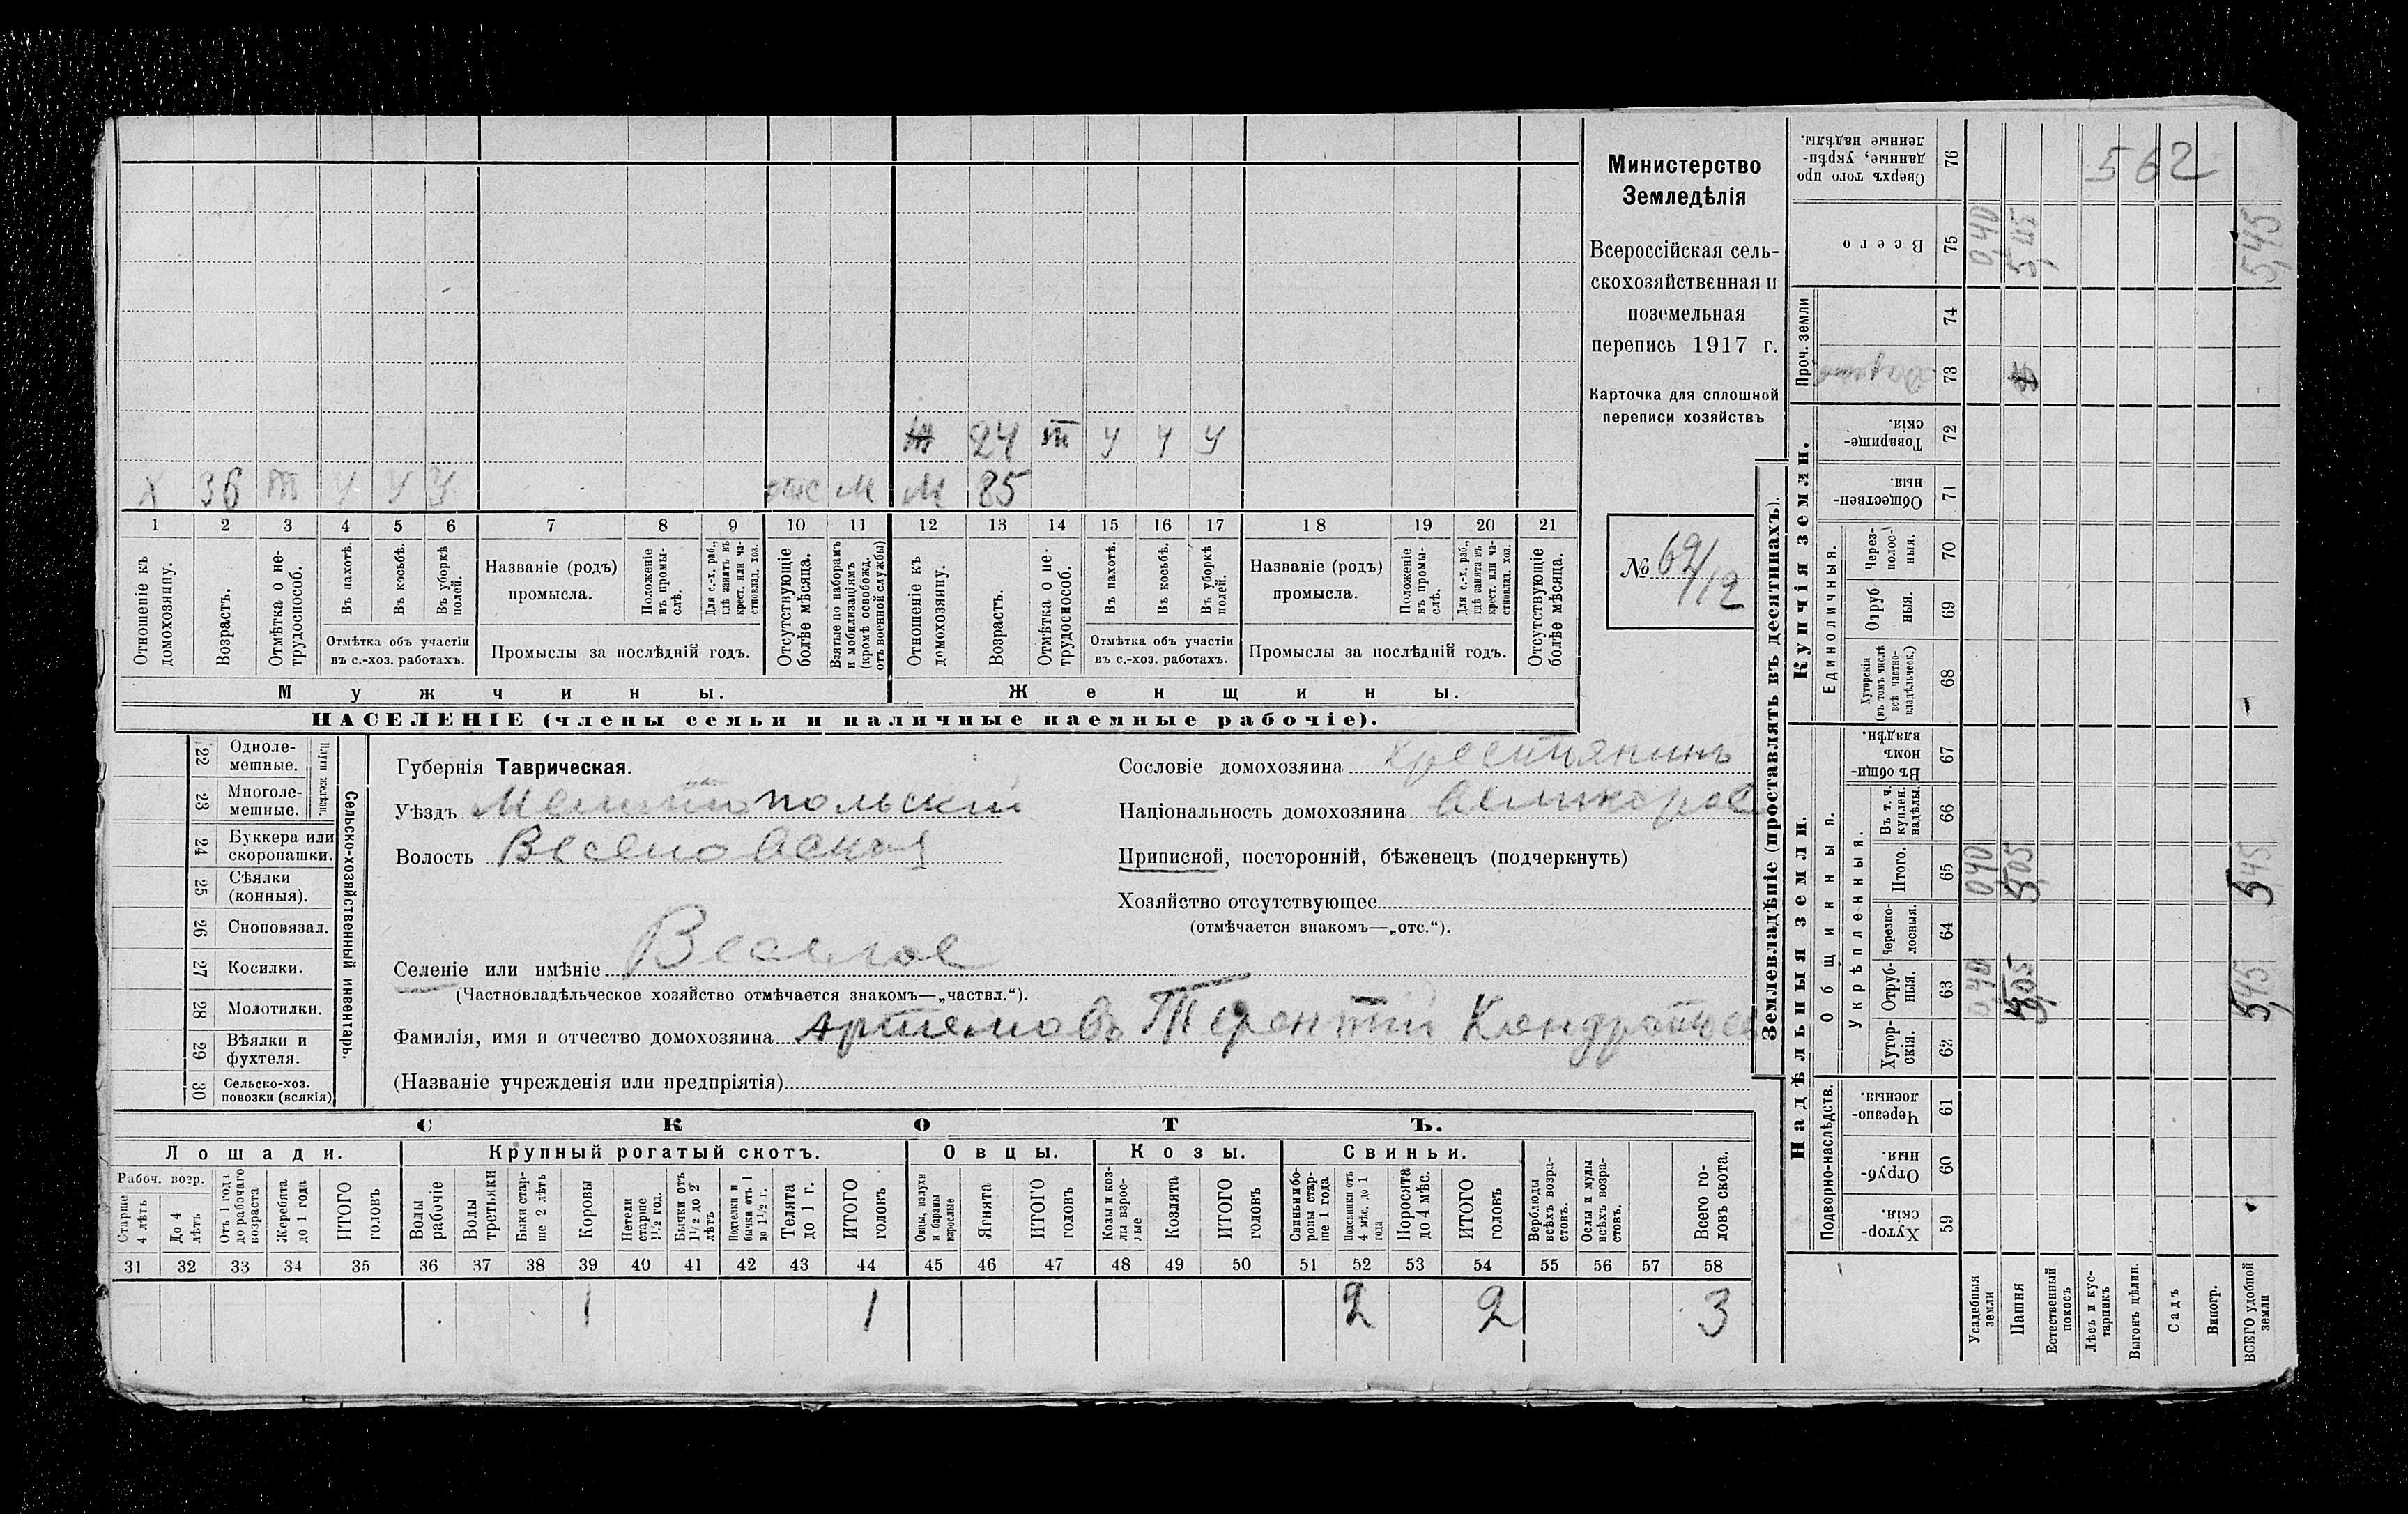 Х 36 т У У У отс М
Ж 24 т У У У
М 85
1 2 3 4 5 6 7 8 9 10 11 12 13 14 15 16 17 18 19 20 21
Отношеніе къ домохозяину.
Возрастъ.
Отмѣтка о нетрудоспособ.
Въ пахотѣ.
Въ косьбѣ.
Въ уборкѣ полей.
Отмѣтка объ участіи
въ с.-хоз. работахъ.
Названіе (родъ)
промысла.
Положеніе въ промыслѣ.
Для с.-х. раб., гдѣ занятъ въ крест. или частновлад. хоз.
Промыслы за послѣдній годъ.
Отсутствующіе болѣе мѣсяца.
Взятые по наборамъ и мобилизаціямъ (кромѣ освобожд. отъ военной службы)
Отношеніе къ домохозяину.
Возрастъ.
Отмѣтка о нетрудоспособ.
Въ пахотѣ.
Въ косьбѣ.
Въ уборкѣ полей.
Отмѣтка объ участіи
въ с.-хоз. работахъ.
Названіе (родъ)
промысла.
Положеніе въ промыслѣ.
Для с.-х. раб., гдѣ занята въ крест. или частновлад. хоз.
Промыслы за послѣдній годъ.
Отсутствующіе болѣе мѣсяца.
Мужчины.
Женщины.
НАСЕЛЕНІЕ (члены семьи и наличные наемные рабочіе).
Министерство
Земледѣлія
Всероссійская сель-
скохозяйственная и
поземельная
перепись 1917 г.
Карточка для сплошной
переписи хозяйствъ
№ 69/12
22 Одноле-
мешные.
23 Многоле-
мешные.
Плуги желѣзн.
24 Буккера или
скоропашки.
25 Сѣялки
(конныя).
26 Сноповязал.
27 Косилки.
28 Молотилки.
29 Вѣялки и
фухтеля.
30 Сельско-хоз.
повозки (всякія)
Сельско-хозяйственный инвентарь.
Губернія Таврическая.
Уѣздъ Мелитопольскій
Волость Веселовская
Селеніе или имѣніе Веселое
(Частновладѣльческое хозяйство отмѣчается знакомъ—„частвл.“).
Фамилія, имя и отчество домохозяина Артемовъ Терентій Кондратьев
(Названіе учрежденія или предпріятія)
Сословіе домохозяина крестьянинъ
Національность домохозяина великорос
Приписной, посторонній, бѣженецъ (подчеркнуть)
Хозяйство отсутствующее
(отмѣчается знакомъ—„отс.“).
СКОТЪ.
Лошади. Крупный рогатый скотъ. Овцы. Козы. Свиньи.
Рабоч. возр.
Старше 4 лѣтъ
До 4 лѣтъ
Отъ 1 года до рабочаго возраста
Жеребята до 1 года
ИТОГО головъ
Волы рабочіе
Волы третьяки
Быки старше 2 лѣтъ
Коровы
Нетели старше 1 1/2 год.
Бычки отъ 1 1/2 до 2 лѣтъ
Подтелки и бычки отъ 1 до 1 1/2 г.
Телята до 1 г.
ИТОГО головъ
Овцы, валухи и бараны взрослые
Ягнята
ИТОГО головъ
Козы и козлы взрослые
Козлята
ИТОГО головъ
Свиньи и боровы старше 1 года
Подсвинки отъ 4 мѣс. до 1 года
Поросята до 4 мѣс.
ИТОГО головъ
Верблюды всѣхъ возрастовъ.
Ослы и мулы всѣхъ возрастовъ.
Всего головъ скота.
31 32 33 34 35 36 37 38 39 40 41 42 43 44 45 46 47 48 49 50 51 52 53 54 55 56 57 58
1 1 2 2 3
Землевладѣніе (проставлять въ десятинахъ).
Сверхъ того проданные, укрѣпленные надѣлы. 76 562
Всего 75 0,40 5,05 5,45
Проч. земли
74
73
Купчія земли.
Товарищескія. 72
Общественныя. 71
Единоличныя.
Черезполос-ныя. 70
Отрубныя. 69
Хуторскія (въ томъ числѣ всѣ частновладѣльческ.) 68
Надѣльныя земли.
Общинныя.
Въ общинномъ владѣн. 67
Укрѣпленныя.
Въ т. ч. куплен. надѣлы. 66
Итого. 65 0,40 5,05 5,45
Черезполосныя. 64
Отрубныя. 63 0,40 5,05 5,45
Хуторскія. 62
Подворно-наслѣдств.
Черезполосныя. 61
Отрубныя. 60
Хуторскія. 59
Усадебныя земли
Пашня
Естественный покосъ
Лѣсъ и кустарникъ
Выгонъ цѣлин.
Садъ
Виногр.
ВСЕГО удобной земли